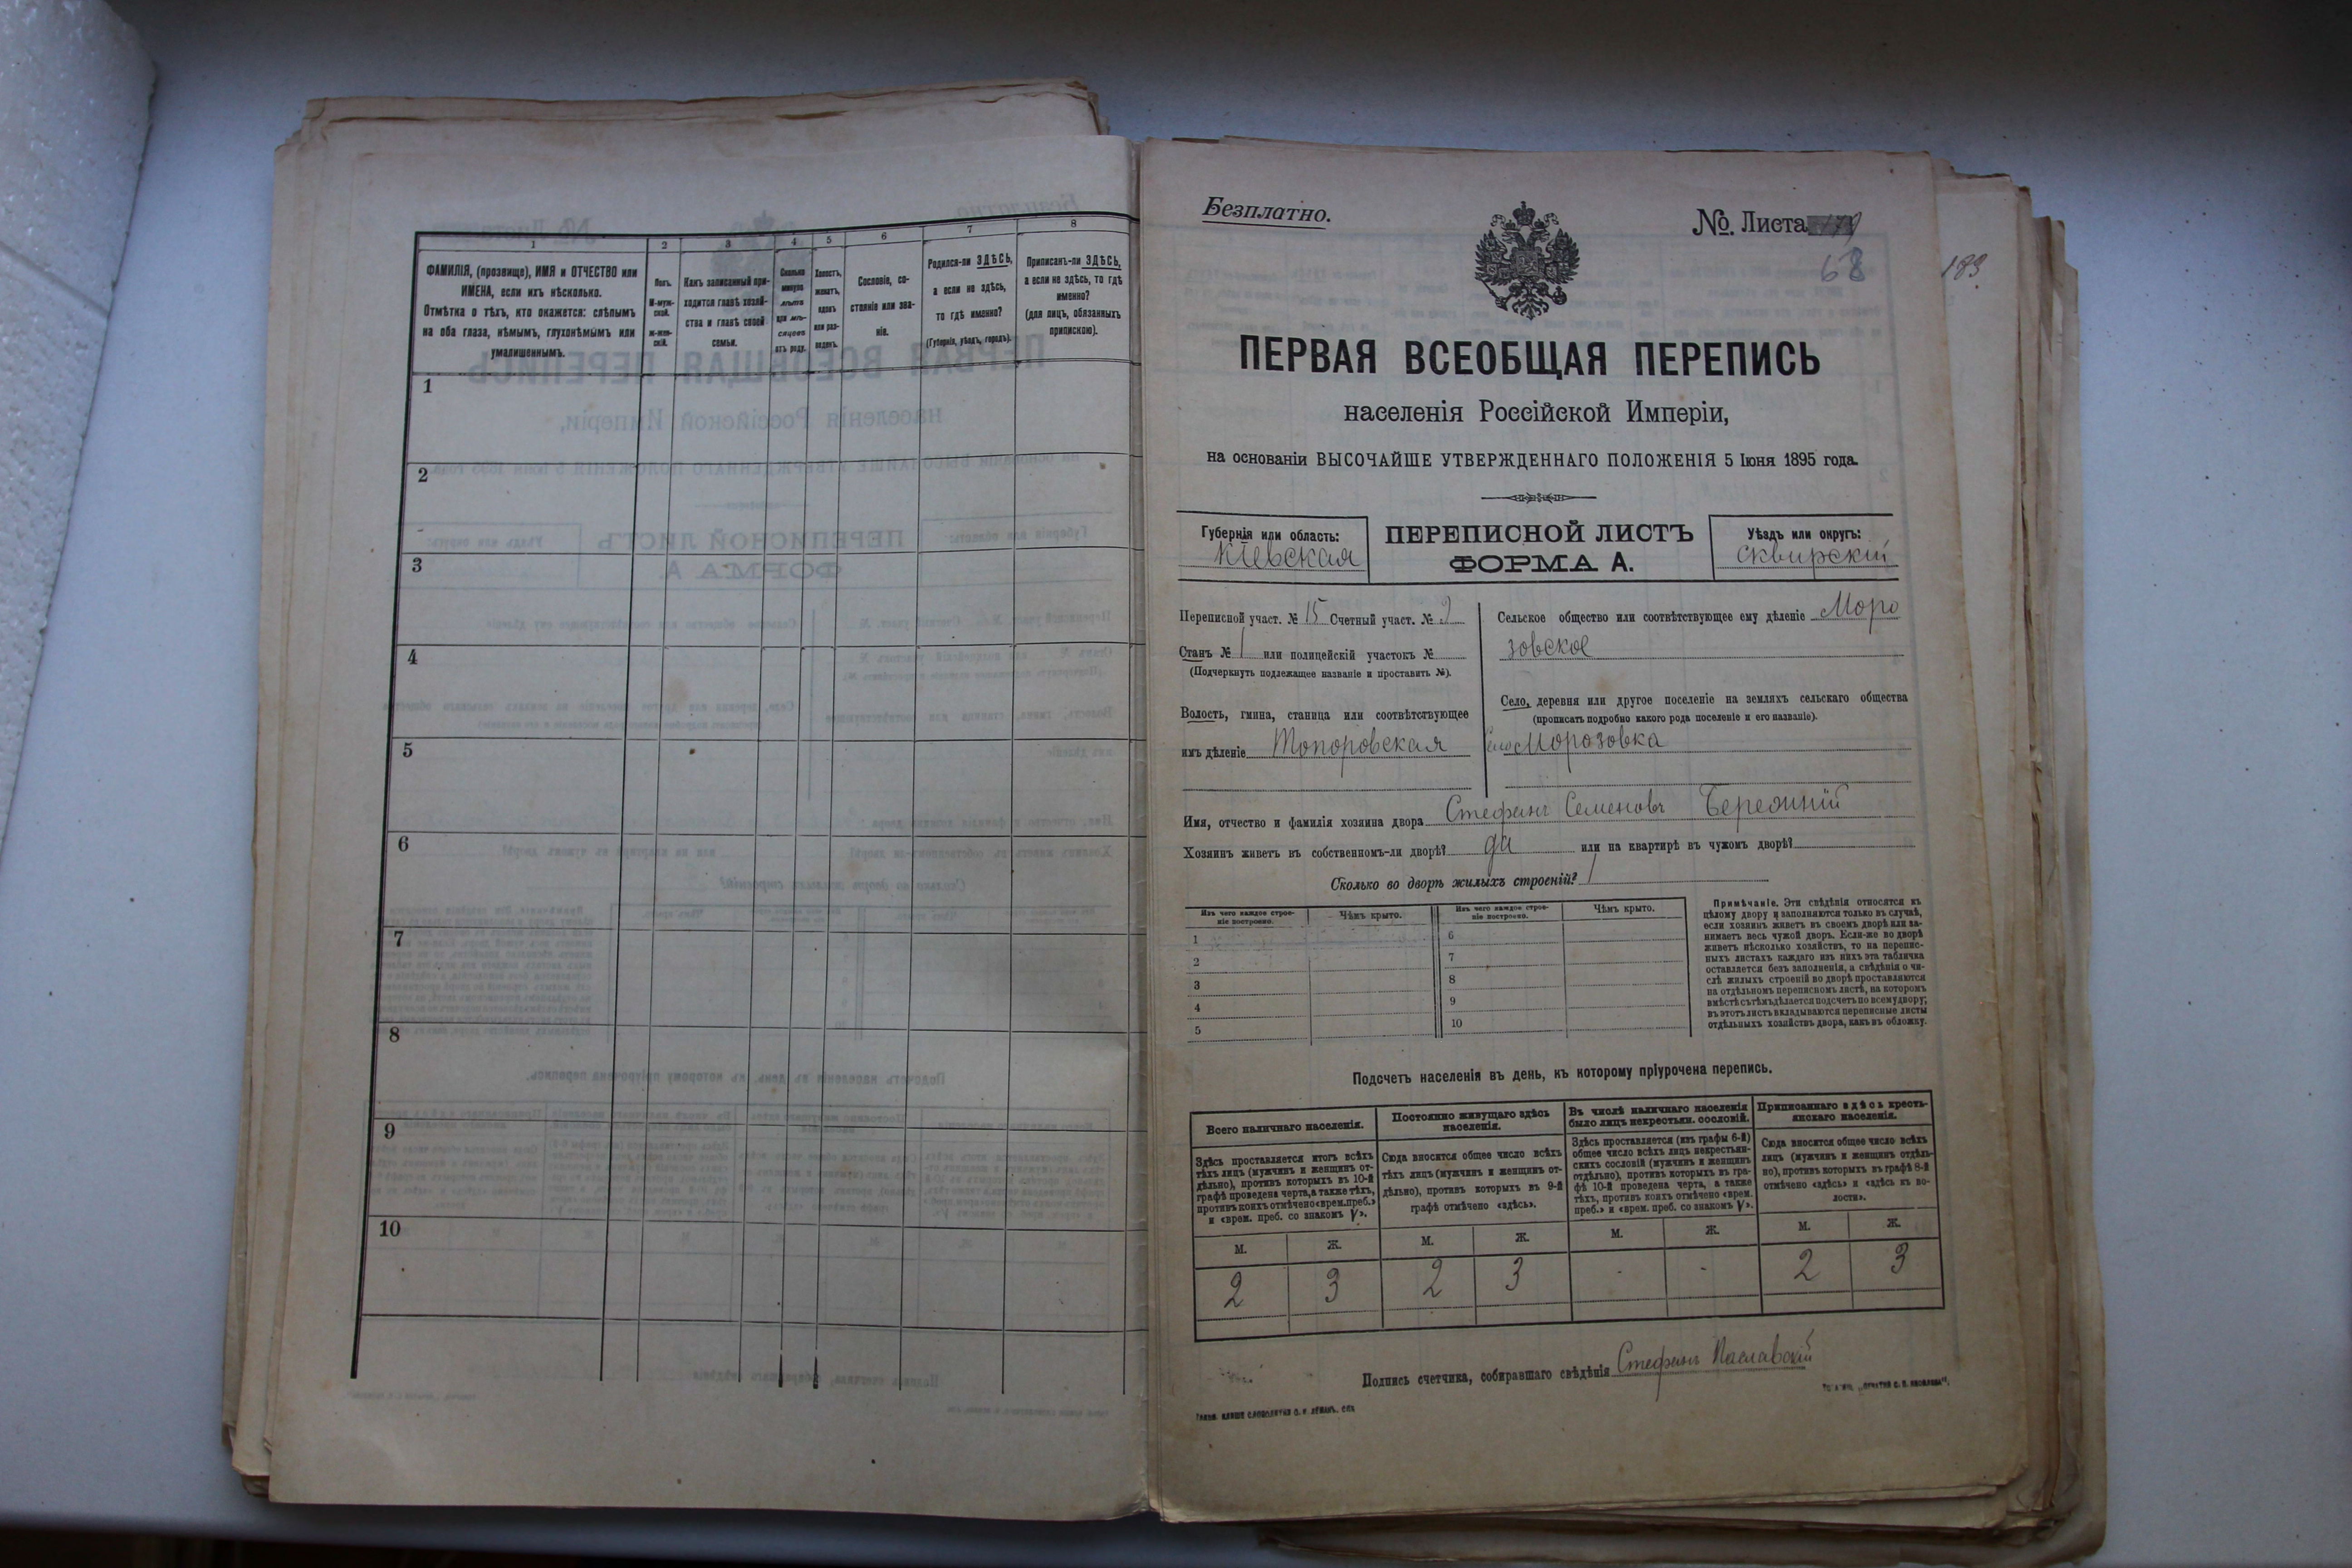 1
2
3
4
5
6
7
8
ФАМИЛІЯ, (прозвище), ИМЯ и ОТЧЕСТВО или
ИМЕНА, если ихъ нѣсколько.
Отмѣтка о тѣхъ, кто окажется: слѣпымъ
на оба глаза, нѣмымъ, глухонѣмымъ или
умалишеннымъ.
Полъ.
М-муж-
ской.
Ж-жен-
скій.
Какъ записанный при-
ходится главѣ хозяй-
ства и главѣ своей
семьи.
Сколько
минуло
лѣтъ
или мѣ-
сяцевъ
отъ роду.
Холостъ,
женатъ,
вдовъ
или раз-
веденъ.
Сословіе, со-
стояніе или зва-
ніе.
Родился-ли ЗДѢСЬ,
а если не здѣсь,
то гдѣ именно?
(Губернія, уѣздъ, городъ).
Приписанъ-ли ЗДѢСЬ,
а если не здѣсь, то гдѣ
именно?
(для лицъ, обязанныхъ
припискою).
1
2
3
4
5
6
7
8
9
10
Безплатно.
№. Листа
68
183
ПЕРВАЯ ВСЕОБЩАЯ ПЕРЕПИСЬ
населенія Россійской Имперіи,
на основаніи ВЫСОЧАЙШЕ УТВЕРЖДЕННАГО ПОЛОЖЕНІЯ 5 Іюня 1895 года.
Губернія или область:
Кіевская
ПЕРЕПИСНОЙ ЛИСТЪ
ФОРМА А.
Уѣздъ или округъ:
Сквирскій
Переписной участ. № 15 Счетный участ. № 2
Станъ № 1 или полицейскій участокъ №
(Подчеркнуть подлежащее названіе и проставить №).
Волость, гмина, станица или соотвѣтствующее
имъ дѣленіе Топоровская
Сельское общество или соотвѣтствующее ему дѣленіе Моро
зовское
Село, деревня или другое поселеніе на земляхъ сельскаго общества
(прописать подробно какого рода поселеніе и его названіе).
Село Морозовка
Имя, отчество и фамилія хозяина двора Стефанъ Семеновъ Бережній
Хозяинъ живетъ въ собственномъ-ли дворѣ? да или на квартирѣ въ чужомъ дворѣ?
Сколько во дворѣ жилыхъ строеній? 1
Изъ чего каждое строе-
ніе построено.
Чѣмъ крыто.
Изъ чего каждое строе-
ніе построено.
Чѣмъ крыто.
1
2
3
4
5
6
7
8
9
10
Примѣчаніе. Эти свѣдѣнія относятся къ
цѣлому двору и заполняются только въ случаѣ,
если хозяинъ живетъ въ своемъ дворѣ или за-
нимаетъ весь чужой дворъ. Если-же во дворѣ
живетъ нѣсколько хозяйствъ, то на перепис-
ныхъ листахъ каждаго изъ нихъ эта табличка
оставляется безъ заполненія, а свѣдѣнія о чи-
слѣ жилыхъ строеній во дворѣ проставляются
на отдѣльномъ переписномъ листѣ, на которомъ
вмѣстѣ съ тѣмъ дѣлается подсчетъ по всему двору;
въ этотъ листъ вкладываются переписные листы
отдѣльныхъ хозяйствъ двора, какъ въ обложку.
Подсчетъ населенія въ день, къ которому пріурочена перепись.
Всего наличнаго населенія.
Здѣсь проставляется итогъ всѣхъ
тѣхъ лицъ (мужчинъ и женщинъ от-
дѣльно), противъ которыхъ въ 10-й
графѣ проведена черта, а также тѣхъ,
противъ коихъ отмѣчено «врем. преб.»
и «врем. преб. со знакомъ V».
Постоянно живущаго здѣсь
населенія.
Сюда вносится общее число всѣхъ
тѣхъ лицъ (мужчинъ и женщинъ от-
дѣльно), противъ которыхъ въ 9-й
графѣ отмѣчено «здѣсь».
Въ числѣ наличнаго населенія
было лицъ некрестьян. сословій.
Здѣсь проставляется (изъ графы 6-й)
общее число всѣхъ лицъ некрестьян-
скихъ сословій (мужчинъ и женщинъ
отдѣльно), противъ которыхъ въ гра-
фѣ 10-й проведена черта, а также
тѣхъ, противъ коихъ отмѣчено «врем.
преб.» и «врем. преб. со знакомъ V».
Приписаннаго здѣсь кресть-
янскаго населенія.
Сюда вносится общее число всѣхъ
лицъ (мужчинъ и женщинъ отдѣль-
но), противъ которыхъ въ графѣ 8-й
отмѣчено «здѣсь» и «здѣсь въ во-
лости».
М. Ж. М. Ж. М. Ж. М. Ж.
2 3 2 3 - - 2 3
Подпись счетчика, собиравшаго свѣдѣнія Стефанъ Паславскій